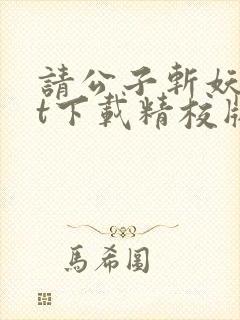 請公子斬妖
t下載精校版
馬希圖